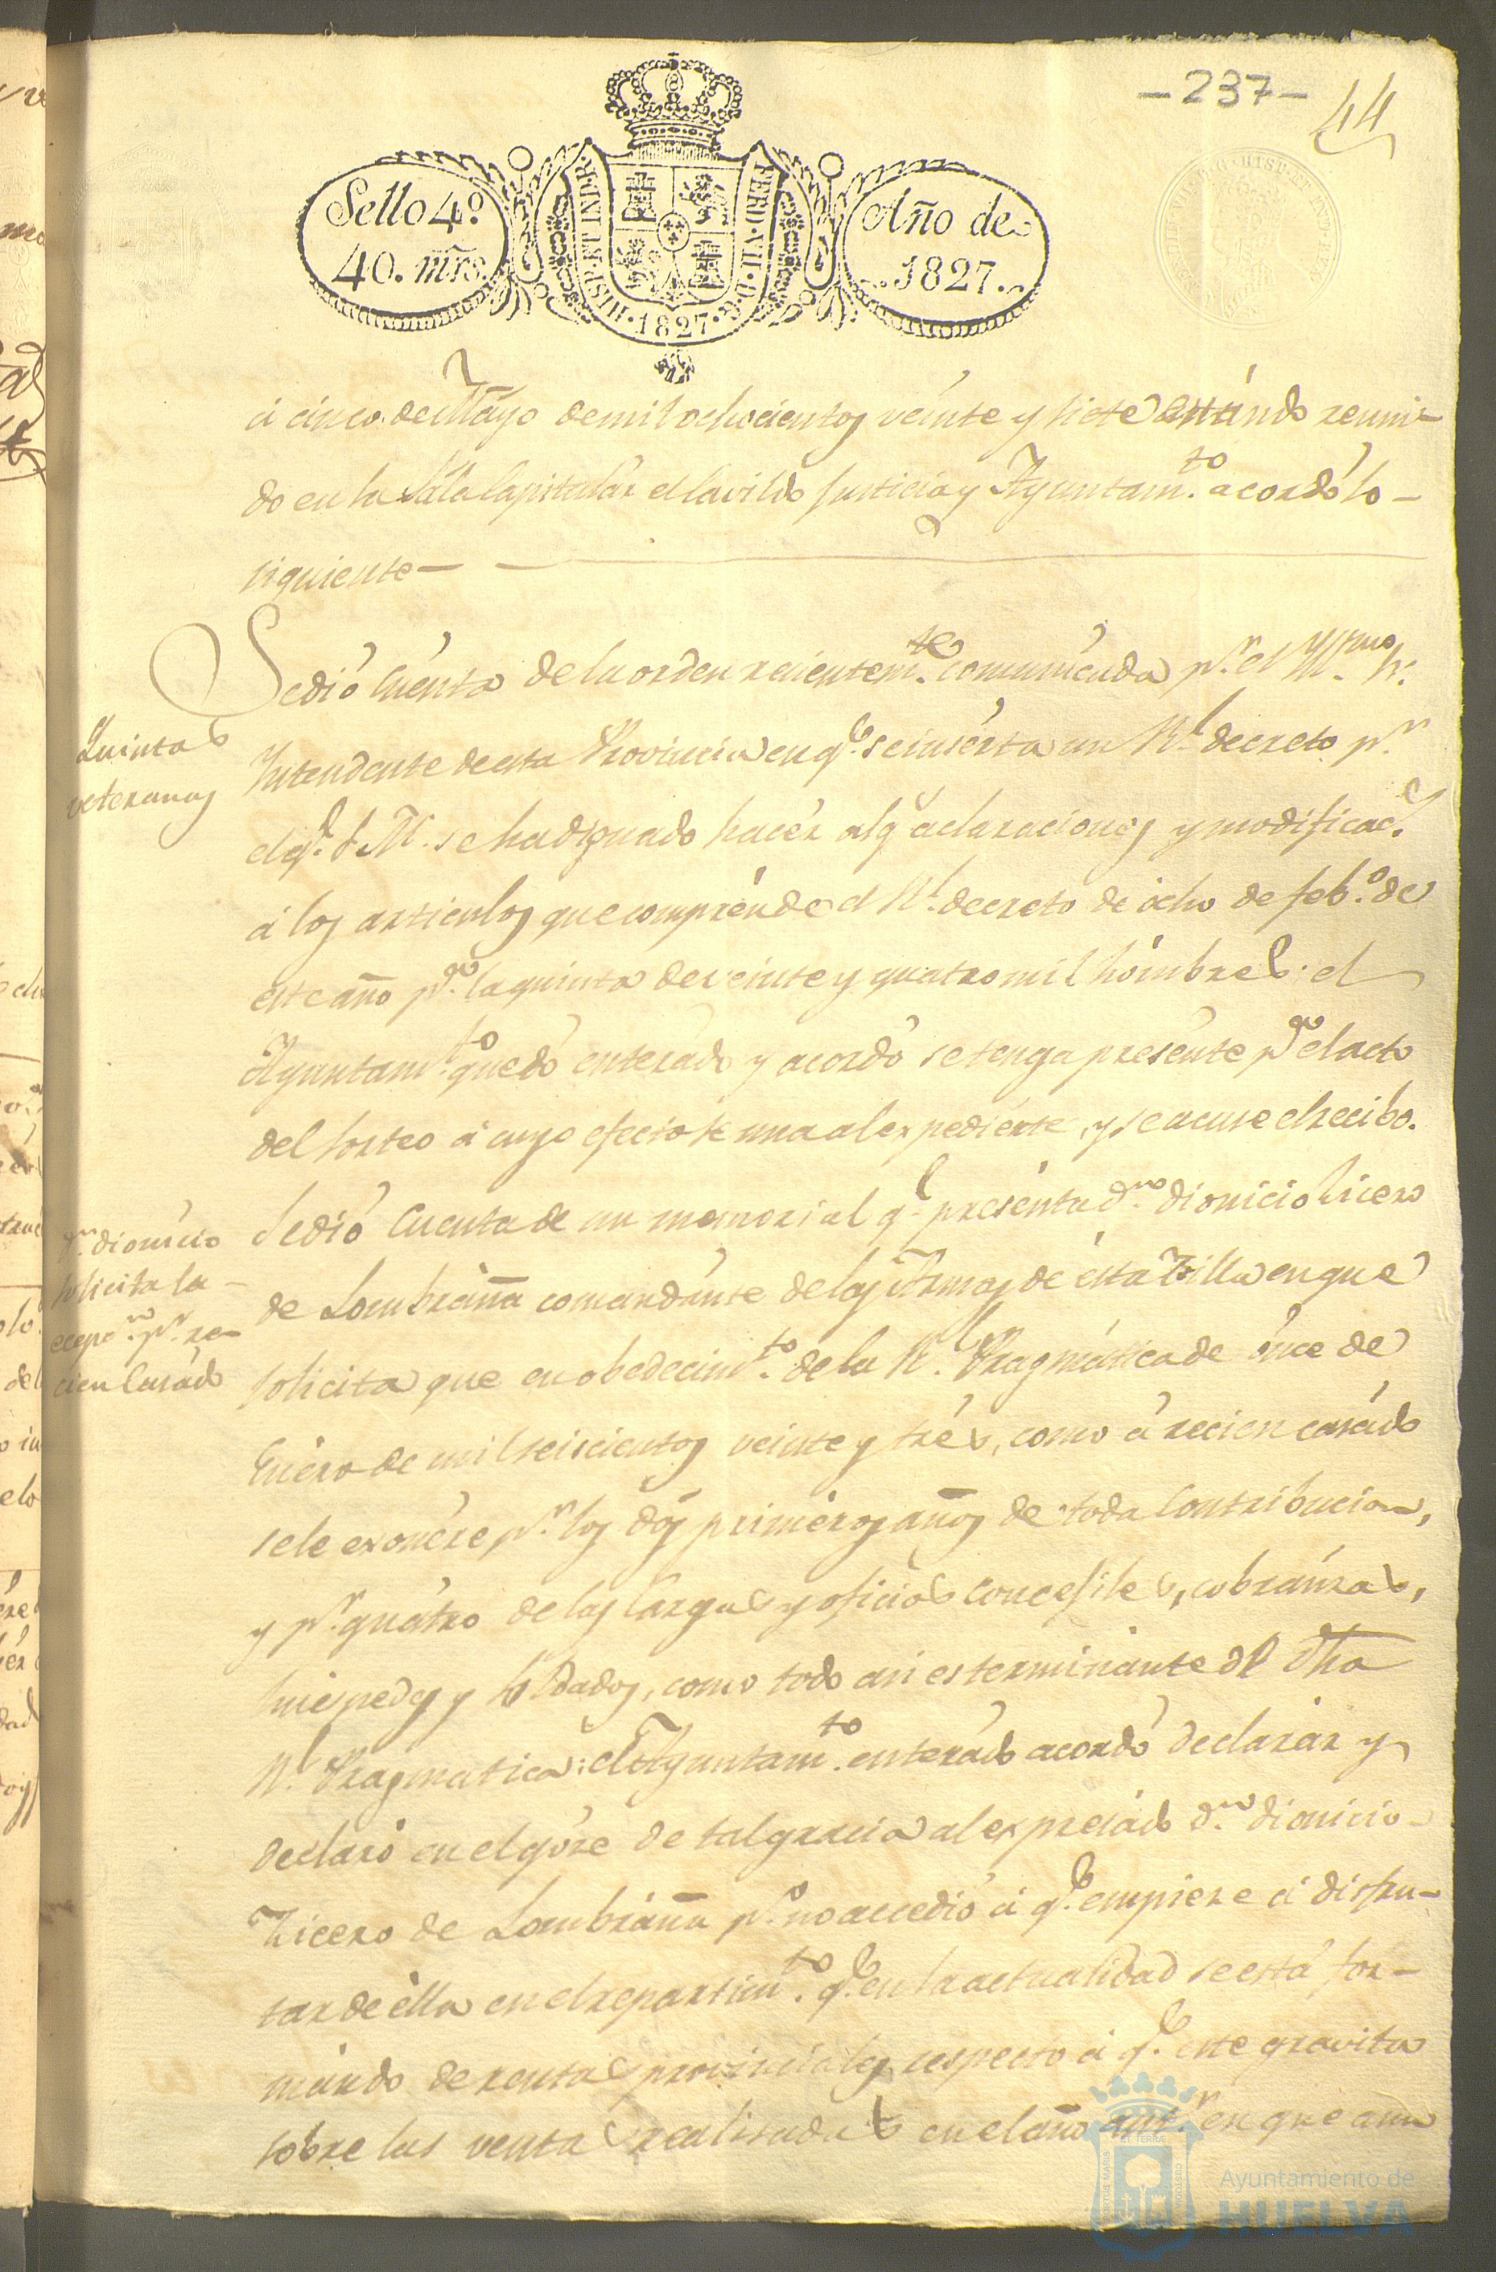 - 237 -
44
Sello 4º
40. mrs.
HISP. ET IND. R.
FERD. VII. D. G.
1827
Año de
1827.
á cinco de Mayo de mil ochocientos veinte y siete estándo reuni-
do en la Sala Capitulár el Cavildo Justicia y Ayuntam.to acordó lo-
siguiente-
Se dió Cuénta de la orden recientem.te comunicada p.r el Yll.mo Sr.
Quintas
veteranos
Yntendente de esta Provincia en q.e se insérta un Rl. decreto p.r
el q.e S. M. se ha dignado hacér alg.s aclaraciones y modificac.s
á los articulos que comprénde el Rl. decreto de ócho de feb.o de
este año p.a la quinta de veinte y quatro mil hómbres: el
Ayuntam.to quedó enterado y acordó se tenga presénte p.a el acto
del sorteo á cuyo efecto se una al expediénte, y se acuse el recibo.
Se dió Cuenta de un memorial q.e presénta d.n dionicio Vicero
d.n dionicio
solicita la-
ecepc.n p.r re-
cien Casado
de Lombráña comandánte de las Armas de ésta Villa en que
solicita que en obedecim.to de la Rl. Pragmática de ónce de
Enéro de mil seiscientos veinte y trés, como á recien casádo
se le exonére p.r los dos priméros años de toda Contribucion,
y p.r quátro de las Cargas y oficios Concegiles, cobránzas,
huéspedes y Soldados, como todo asi es terminante de dha
Rl. Pragmatica: el Ayuntam.to enterádo acordó declarár y
declaró en el góze de tal gracia al expresádo d.n dionicio-
Vicero de Lombráña p.o no accedió á q.e empieze á disfru-
tar de élla en el repartim.to q.e en la actualidad se está for-
mándo de rentas provinciales respecto á q.e este gravita
sobre las ventas realisadas en el año ant.r en que aun
Ayuntamiento de
HUELVA